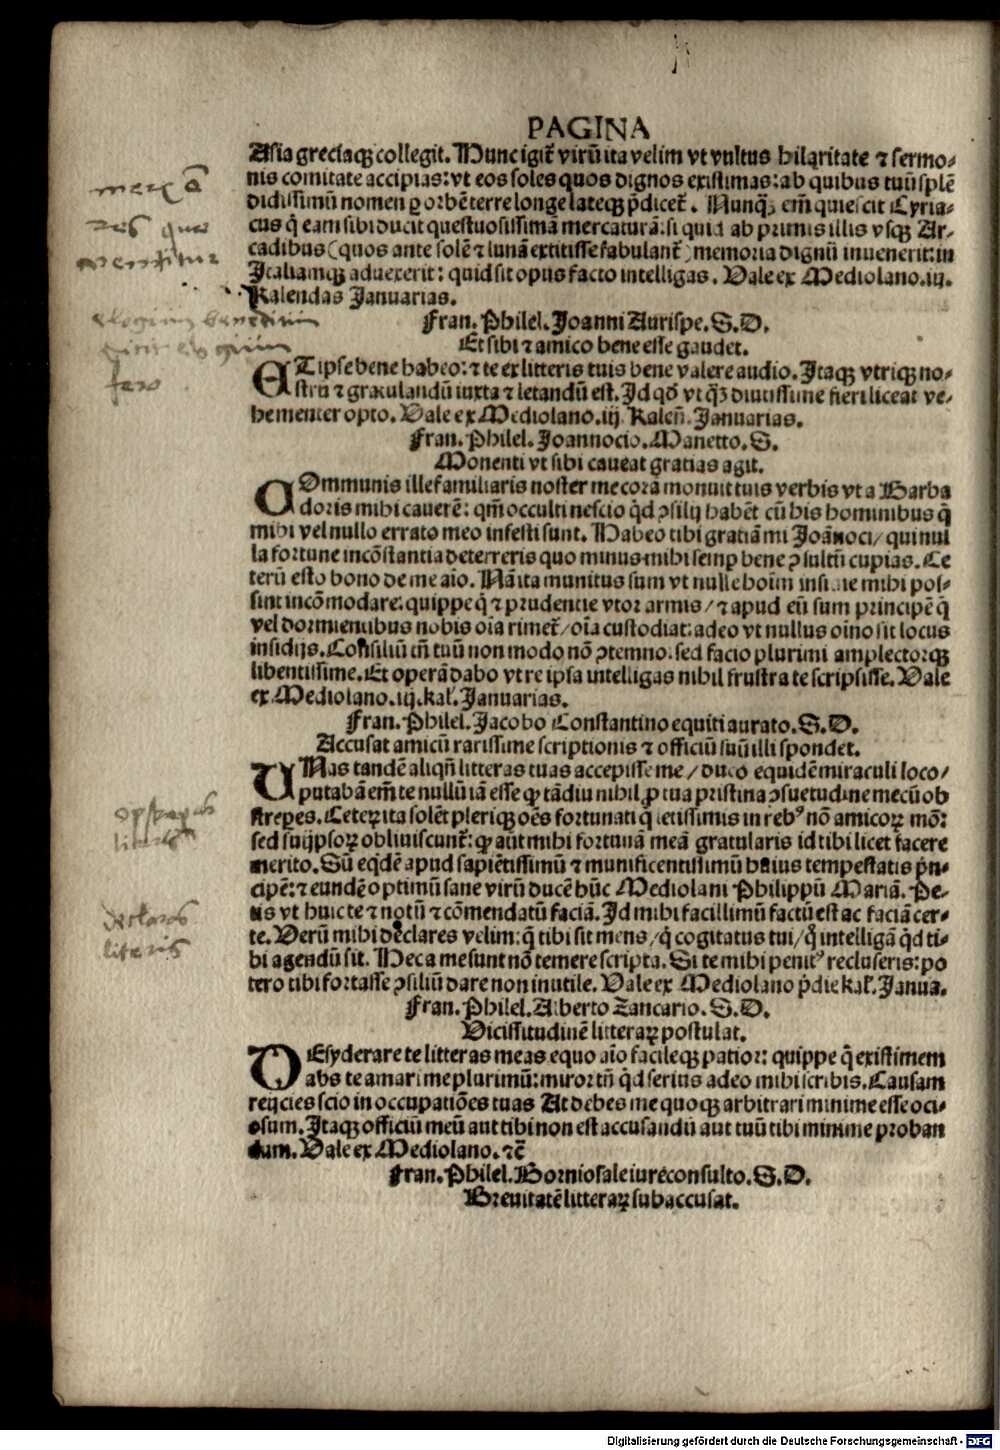 PAGINA
Asia greciaqꝫ collegit. Hunc igit᷑ virū ita velim vt vultus hilaritate ⁊ sermo⸗
nis comitate accipias: vt eos soles quos dignos existimas: ab quibus tuū splē
didissimū nomen ꝑ orbē terre longe lateqꝫ p̄dicet᷑. Nunqꝫ em̄ quiescit Cyria⸗
cus q̄ eam sibi ducit questuosissimā mercaturā: si quid ab primis illis vsqꝫ Ar⸗
cadibus (quos ante solē ⁊ lunā extitisse fabulant᷑) memoria dignū invenerit: in
Italiamqꝫ aduexerit: quid sit opus facto intelligas. Vale ex Mediolano. iij.
Kalendas Januarias.
Fran. Philel. Joanni Aurispe. S. D.
Et sibi ⁊ amico bene esse gaudet.
ETipse bene habeo: ⁊ te ex litteris tuis bene valere audio. Itaqꝫ vtriqꝫ no⸗
strū ⁊ gratulandū iuxta ⁊ letandū est. Id qď vt qꝫ diutissime fieri liceat ve⸗
hementer opto. Vale ex Mediolano. iij. Kaleñ. Januarias.
Fran. Philel. Joannocio. Manetto. S.
Monenti vt sibi caueat gratias agit.
COmmunis ille familiaris noster me corā monuit tuis verbis vt a Barba
doris mihi cauerē: qm̄ occulti nescio qd̄ ↄsilij habēt cū his hominibus q̄
mihi vel nullo errato meo infesti sunt. Habeo tibi gratiā mi Joānoci/ qui nul
la fortune incōstantia deterreris quo minus mihi semp bene ↄsultū cupias. Ce
terū esto bono de me aīo. Nā ita munitus sum vt nulle hoīm insidie mihi pos⸗
sint incōmodare: quippe q̄ ⁊ prudentie vtor armis/ ⁊ apud eū sum principē q̄
vel dormientibus nobis oīa rimet᷑/ oīa custodiat: adeo vt nullus oīno sit locus
insidijs. Consiliū tn̄ tuū non modo nō ↄtemno: sed facio plurimi amplectorqꝫ
libentissime. Et operā dabo vt re ipsa intelligas nihil frustra te scripsisse. Vale
ex Mediolano. iij. kal᷑. Januarias.
Fran. Philel. Jacobo Constantino equiti aurato. S. D.
Accusat amicū rarissime scriptionis ⁊ officiū suū illi spondet.
VNas tandē aliqn̄ litteras tuas accepisse me/ duco equidē miraculi loco/
putabā em̄ te nullū iā esse qꝙ tādiu nihil ꝓ tua pristina ↄsuetudine mecū ob
streꝑes. Ceteꝝ ita solēt pleriqꝫ oēs fortunati q̄ letissimis in rebꝰ nō amicoꝝ mō:
sed suijpsoꝝ obliuiscunt᷑: ꝙ aūt mihi fortunā meā gratularis id tibi licet facere
merito. Sū eqͥdē apud sapiētissimū ⁊ munificentissimū huius tempestatis p̄n⸗
cipē: ⁊ eundē optimū sane virū ducē hūc Mediolani Philippū Mariā. Pe⸗
tis vt huic te ⁊ notū ⁊ cōmendatū faciā. Id mihi facillimū factū est ac faciā cer⸗
te. Verū mihi declares velim: q̄ tibi sit mens/ q̄ cogitatus tui/ qͦ intelligā qd̄ ti⸗
bi agendū sit. Nec a me sunt nō temere scripta. Si te mihi penitꝰ recluseris: po
tero tibi fortasse ↄsiliū dare non inutile. Vale ex Mediolano p̄die kal᷑. Janua.
Fran. Philel. Alberto Zancario. S. D.
Vicissitudinē litteraꝝ postulat.
DEsyderare te litteras meas equo aīo facileqꝫ patior: quippe q̄ existimem
abs te amari me plurimū: miror tn̄ qd̄ serius adeo mihi scribis. Causam
reijcies scio in occupatiōes tuas At debes me quoqꝫ arbitrari minime esse oci⸗
osum. Itaqꝫ officiū meū aut tibi non est accusandū aut tuū tibi minime proban
dum. Vale ex Mediolano. ⁊c̄
Fran. Philel. Bornio sale iureconsulto. S. D.
Breuitatē litteraꝝ subaccusat.
declares
literis
Digitalisierung gefördert durch die Deutsche Forschungsgemeinschaft - DFG